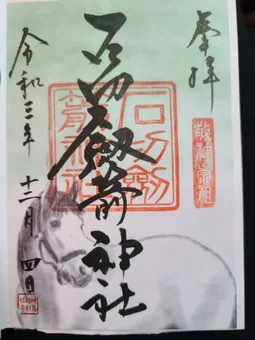 奉拝
敬神崇祖
石切劔箭神社
石切劔
箭神社
令和三年 十二月 四日